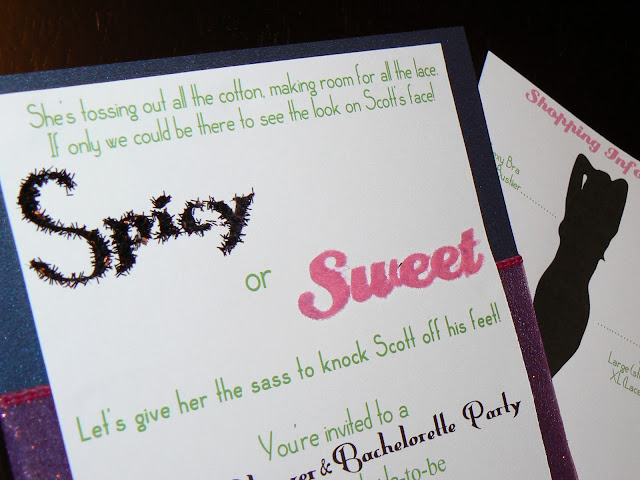 She's tossing out all the cotton, making room for all the lace.
If only we could be there to see the look on Scott's face!
Spicy
or
Sweet
Let's give her the sass to knock Scott off his feet!
You're invited to a
& Bachelorette Party
-to-be
Shopping Info
Bra
Large
XL (Lace